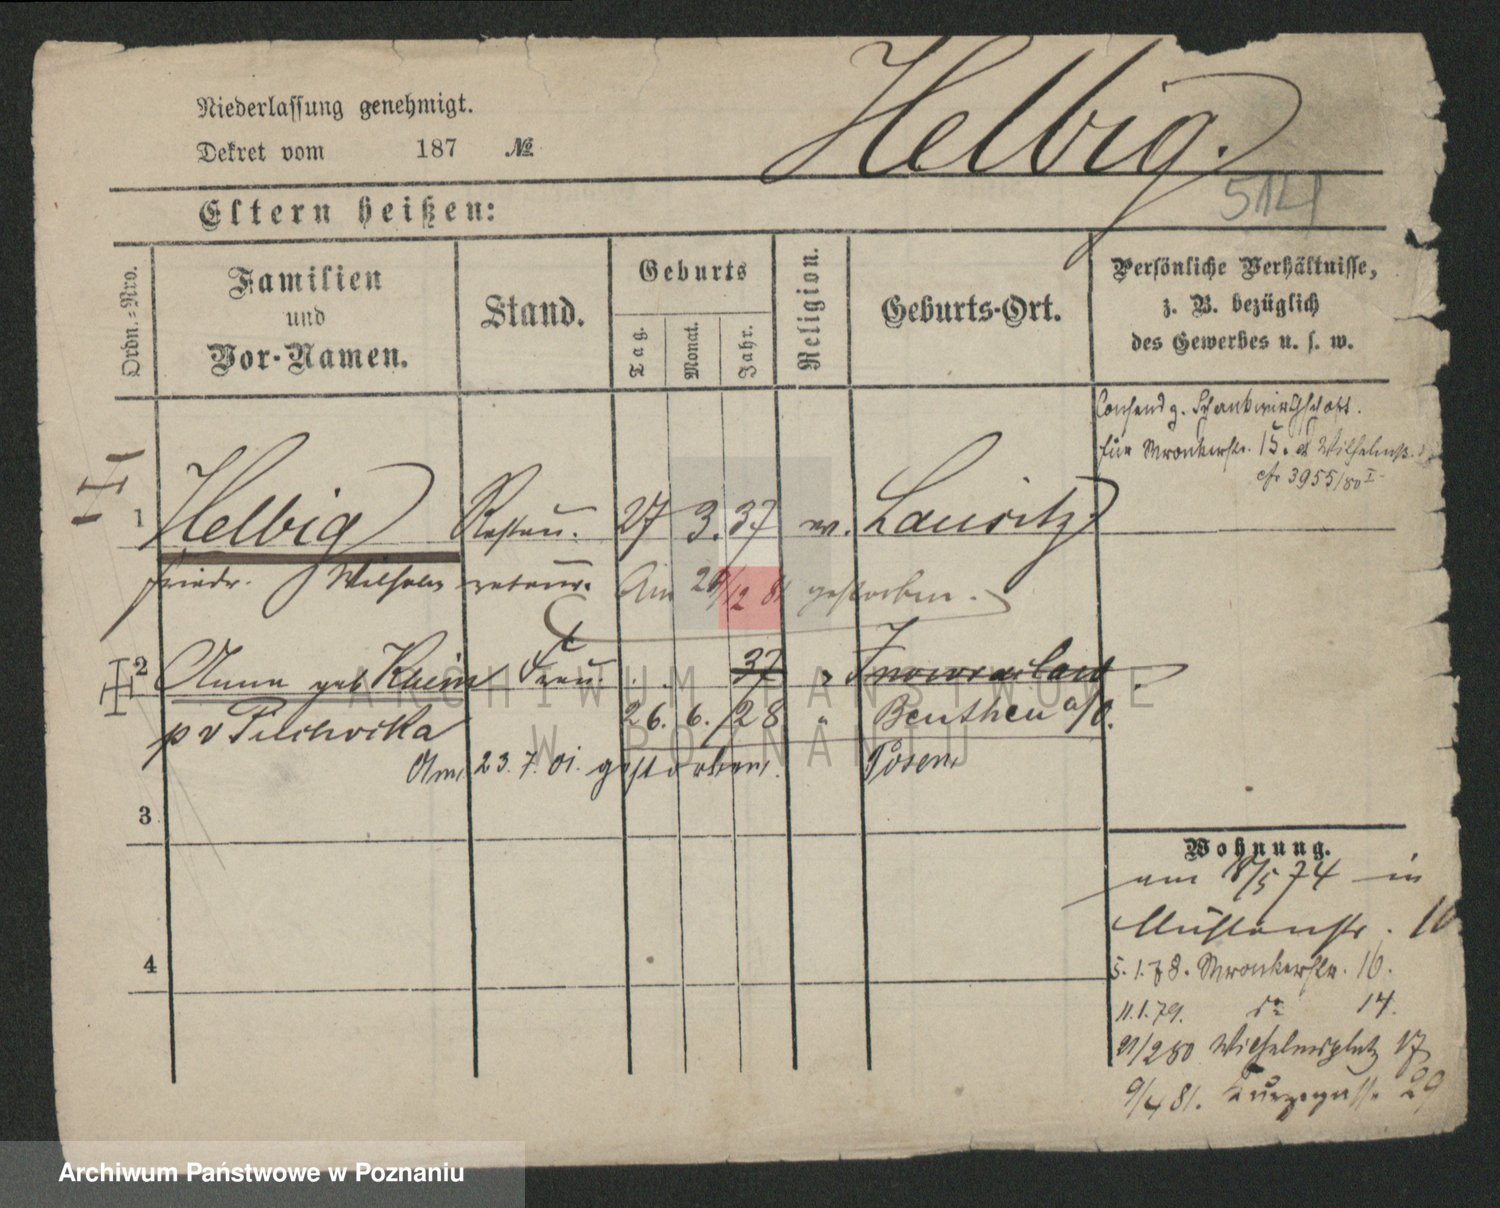 Niederlassung genehmigt.
Dekret vom 187 №
Helbig.
5121
Eltern heißen:
Ordn.-Nro.
Familien
und
Vor-Namen.
Stand.
Geburts
Tag.
Monat.
Jahr.
Religion.
Geburts-Ort.
Persönliche Verhältnisse,
z. B. bezüglich
des Gewerbes u. s. w.
Consens z. Schankwirthschaft.
für Wronkerstr. 15. Wilhelmsß.
cfr 3955/80 I
1 Helbig Restau. 27 3. 37 ev. Lausitz
Friedr. Wilhelm rateur. Am 12 81 gestorben.
2 Anna geb Frau. 37 " Inowraclaw
p v 26. 6. 28 " Beuthen a/O.
Am 23. 7. 01. gestorben. Posen
3
4
Wohnung.
am 18/5 74 in
Mühlenstr. 16
5. 1. 78. Wronkerstr. 16.
11. 1. 79. do 14.
21/2 80 Wilhelmsplatz 17
9/4 81. Kurzegasse 29
ARCHIWUM PAŃSTWOWE
W POZNANIU
Archiwum Państwowe w Poznaniu